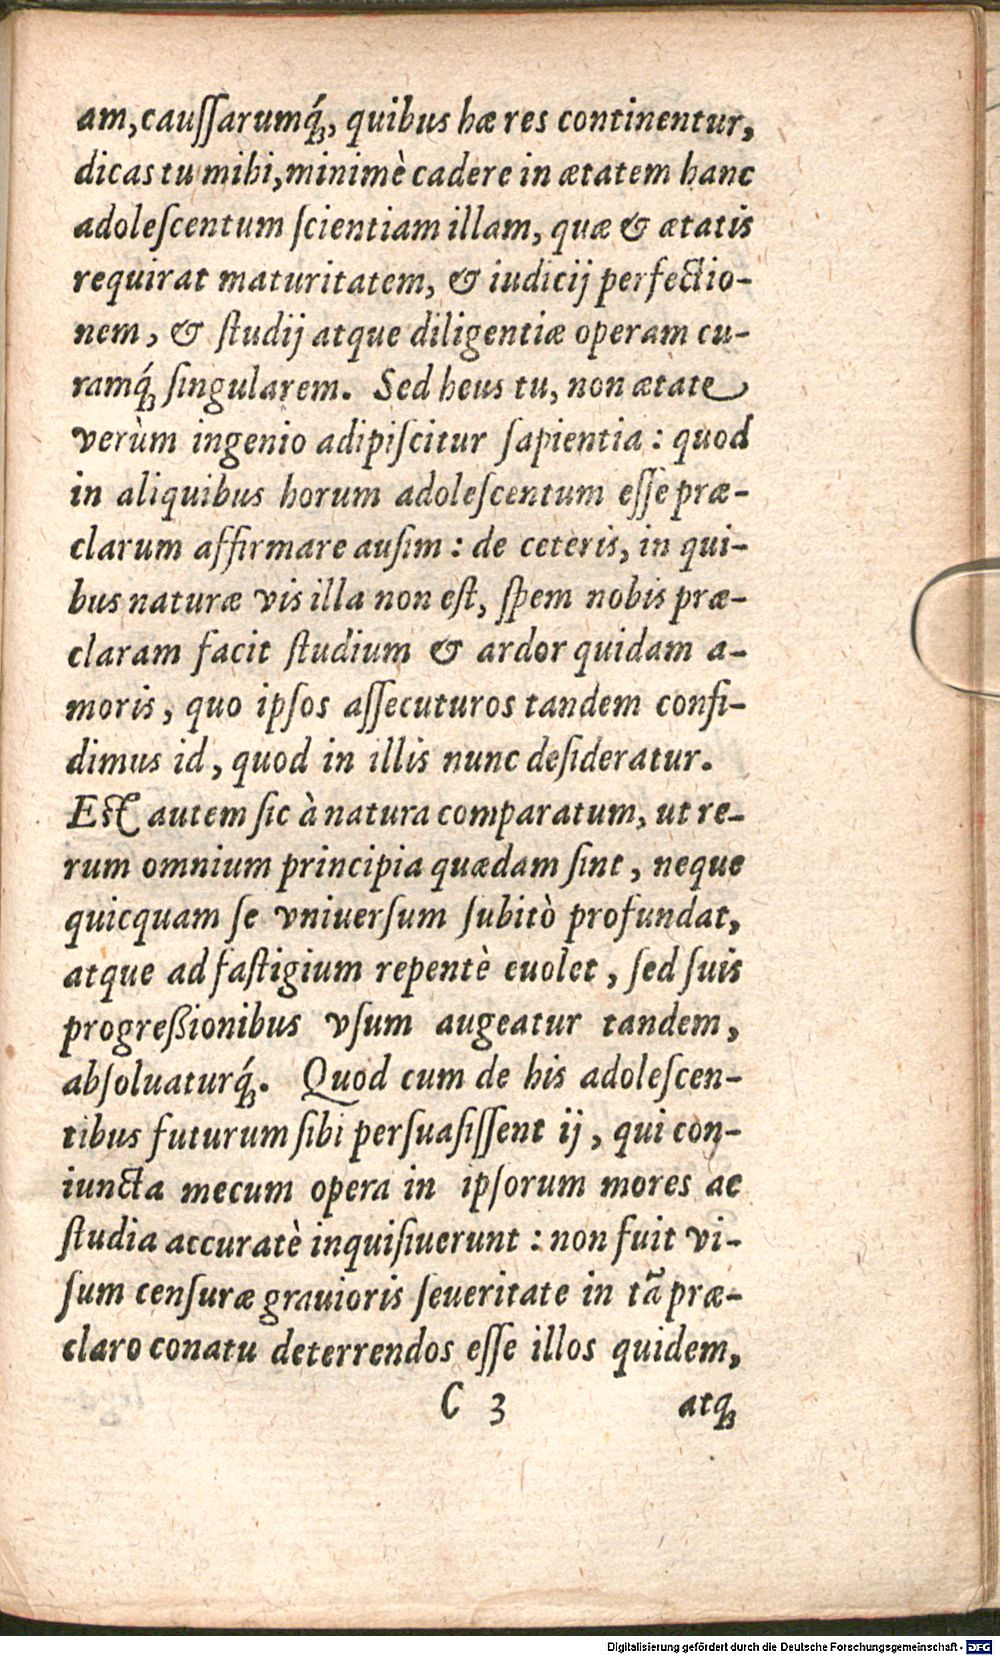 am, cauſſarumq́;, quibus hæ res continentur,
dicas tu mihi, minimè cadere in ætatem hanc
adoleſcentum ſcientiam illam, quæ & ætatis
requirat maturitatem, & iudicij perfectio-
nem, & ſtudij atque diligentiæ operam cu-
ramq́; ſingularem. Sed heus tu, non ætate
verùm ingenio adipiſcitur ſapientia: quod
in aliquibus horum adoleſcentum eſſe præ-
clarum affirmare auſim: de ceteris, in qui-
bus naturæ vis illa non eſt, ſpem nobis præ-
claram facit ſtudium & ardor quidam a-
moris, quo ipſos aſſecuturos tandem confi-
dimus id, quod in illis nunc deſideratur.
Eſt autem ſic à natura comparatum, ut re-
rum omnium principia quædam ſint, neque
quicquam ſe vniuerſum ſubitò profundat,
atque ad faſtigium repentè euolet, ſed ſuis
progreßionibus vſum augeatur tandem,
abſoluaturq́;. Quod cum de his adoleſcen-
tibus futurum ſibi perſuaſiſſent ij, qui con-
iuncta mecum opera in ipſorum mores ac
ſtudia accuratè inquiſiuerunt: non fuit vi-
ſum cenſuræ grauioris ſeueritate in tã præ-
claro conatu deterrendos eſſe illos quidem,
C 3 atq;
Digitalisierung gefördert durch die Deutsche Forschungsgemeinschaft - DFG